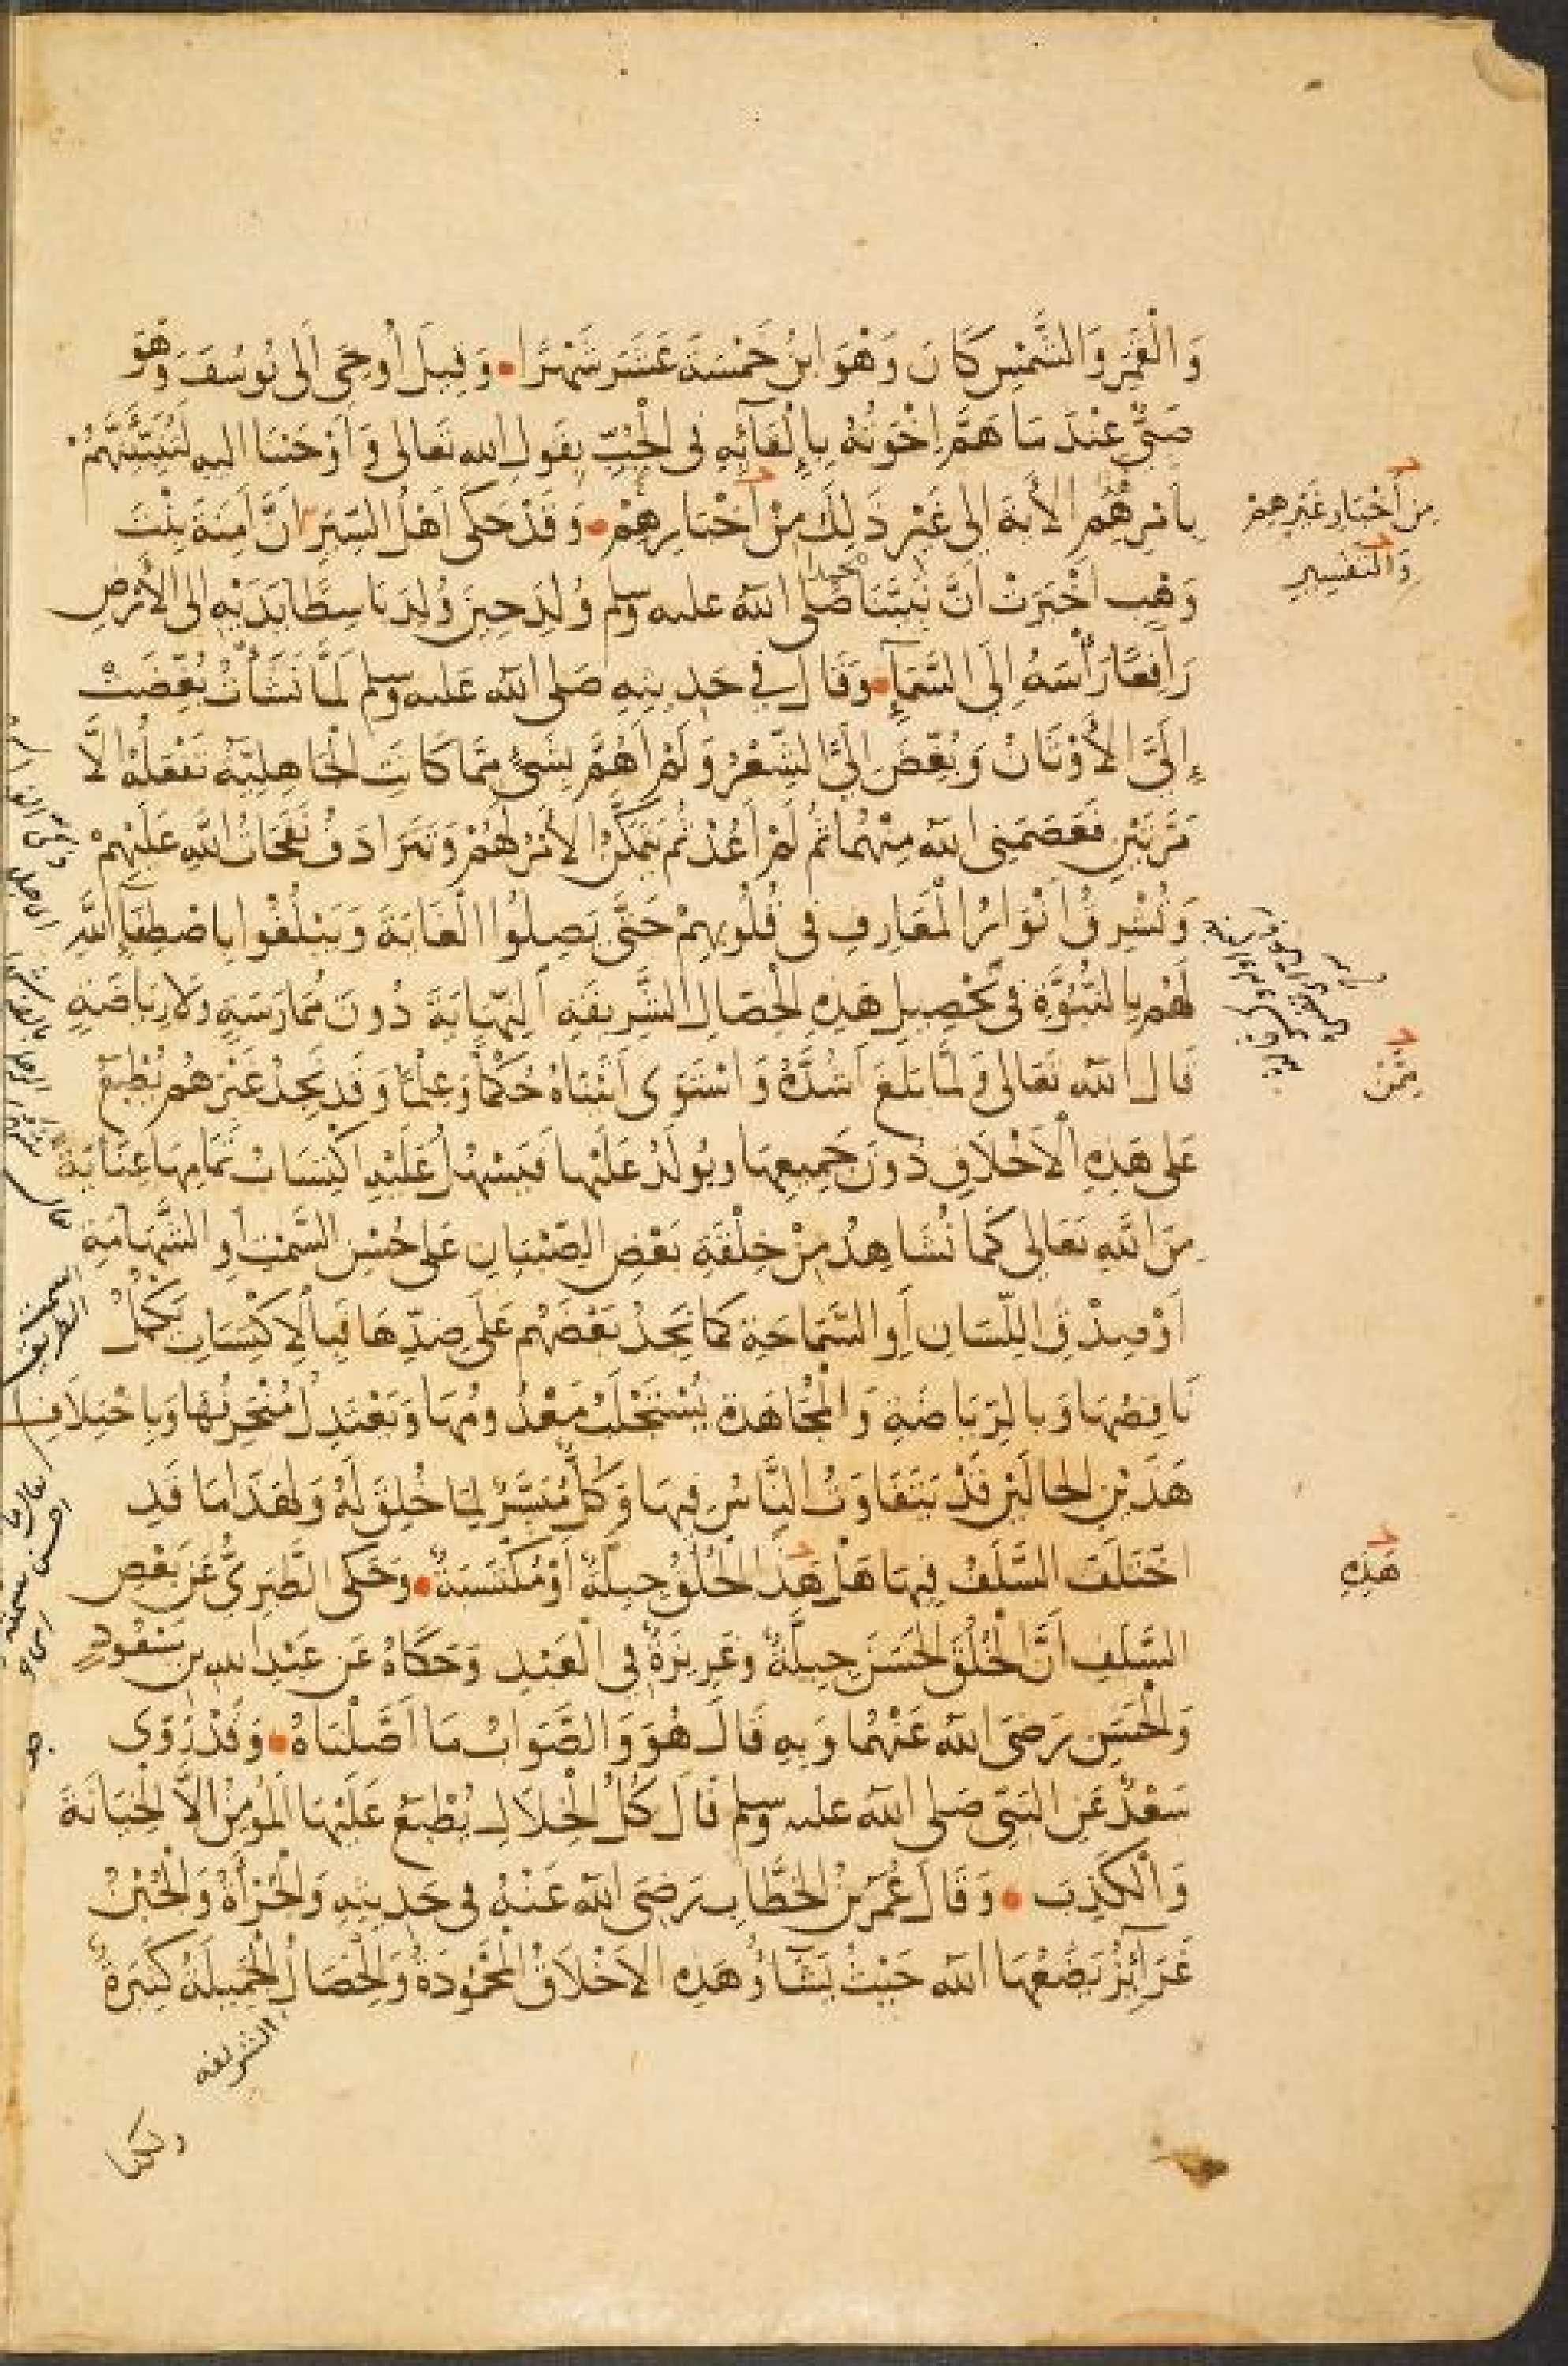 وَالْقَمَرِ وَالشَّمْسِ كَانَ وَهُوَ ابنُ خَمْسَةَ عَشَرَ شَهْرًا وَقِيلَ أُوحِىَ إلَى يُوسُفَ وَهُوَ
صَبِىٌّ عِنْدَ مَا هَمَّ اِخْوَتُهُ بِاِلْقَائِهِ فى الْجُبِّ بِقَولِ الله تَعَالى وَأَوْحَيْنَا اليه لَتُنَبِّئَنَّهُمْ
بِأَمْرِهُم الْأيَةَ إلى غَيْرِ ذَلِكَ مِنْ أَخْبَارِهِمْ وَقَدْ حَكَى أَهْلُ السِّيَرِ أَنَّ آمِنَةَ بِنْتَ
مِن أَخْبَارِ غَيْرِهِمْ
وَالتَفْسِيرِ
وَهْبٍ أَخْبَرَتْ أَنَّ نَبِيَّنَا محمدا صَلى الله عليه وسلم وُلِدَ حِينَ وُلِدَ بَاسِطًا يَدَيْهِ إلى الْأَرْضِ
رَافِعًا رَأْسَهُ إلَى السَّمَآءِ وَقَالَ فِي حَدِيثِهِ صَلى الله عَليه وسلم لَمَّا نَشَأْتُ بُغِّضَتْ
إِلَىَّ الْأَوْثَانُ وَبُغِّضَ إِلَىَّ الشِّعْرُ وَلَمْ أَهُمَّ بِشَىْءٍ مِمَّا كَانَتِ الْجَاهِلِيَّة تَفْعَلُهُ الَّا
مَرَّتَيْنِ فَعَصَمَنِى الله مِنْهُمَا ثُمَّ لَمْ أَعُدْ ثُمَّ يَتَمَكَّنُ الأَمْرُ لَهُمْ وَتَتَرَادَفُ نَفَحَاتُ اللَّهِ عَلَيْهِمْ
وَتُشْرِقُ أَنْوَارُ الْمَعَارِفِ فى قُلُوبِهِمْ حَتَّى يَصِلُوا الْغَايَةَ وَيَبْلُغُوا بِاصْطِفَآءِ اللَّهِ
لَهُم بِالنُّبُوَّةِ فى تَحْصِيلِ هَذِهِ الْخِصَالِ الشَّرِيفَهِ النِّهَايَةَ دُونَ مُمَارَسَةٍ وَلَا رِيَاضَةٍ
قَالَ الله تَعَالى وَلَمَّا بَلَغَ أَشُدَّهُ وَاسْتَوَى آتَيْنَاهُ حُكْمًا وَعِلْمًا وَقَد نَجِدُ غَيْرَهُم يُطْبَعُ
مِمَّنْ
عَلى هَذِهِ الْأَخْلَاقِ دُونَ جَمِيعِهَا وَيُولَدُ عَلَيْهَا فَيَسْهُلُ عَلَيْهِ اكْتِسَابُ تَمَامِهَا عِنَايَةً
مِنَ اللَّهِ تَعَالى كَمَا نُشَاهِدُ مِنْ خِلْقَةِ بَعْضِ الصِّبْيَانِ عَلى حُسْنِ السَّمْتِ أَوِ الشَّهَامَةِ
أَوْ صِدْقِ اللِّسَانِ أَوِ السَّمَاحَةِ كَمَا نَجِدُ بَعْضَهُم عَلَى ضِدِّهَا فَبِالِاكْتِسَابِ يَكْمُلُ
نَاقِصُهَا وَبِالرِّيَاضَةِ وَالْمُجَاهَدَةِ يُسْتَجْلَبُ مَعْدُومُهَا وَيَعْتَدِلُ مُنْحَرِفُهَا وَبِاخْتِلَافِ
هَذَيْنِ الحَالَيْنِ قَدْ يَتَفَاوَتُ النَّاسُ فِيهَا وَكُلٌّ مُيَسَّرٌ لِمَا خُلِقَ لَهُ وَلِهَذَا مَا قَدِ
اخْتَلَفَ السَّلَفُ فِيهَا هَلْ هَذَا الْخُلُقُ جِبِلَّةٌ أَوْ مُكْتَسَبَةٌ وَحَكى الطَّبَرِىُّ عَنْ بَعْضِ
هَذِهِ
السَّلَفِ أَنَّ الْخُلُقَ الْحَسَنَ جِبِلَّةٌ وَغَرِيزَةٌ فِى الْعَبْدِ وَحَكَاهُ عَن عَبْدِ الله بْنِ مَسْعُودٍ
وَالْحَسَنِ رَضِىَ الله عَنْهُمَا وَبِهِ قَالَ هُوَ وَالصَّوَابُ مَا أَصَّلْنَاهُ وَقَدْ رَوَى
سَعْدٌ عَنِ النَّبِىِّ صَلى الله عليه وسلم قَالَ كُلُّ الْخِلَالِ يُطْبَعُ عَلَيْهَا الْمُؤْمِنُ الَّا الْخِيَانَةَ
وَالْكَذِبَ وَقَالَ عُمَرُ بْنُ الْخَطَّابِ رَضِىَ الله عَنْهُ فى حَدِيثِهِ وَالْجُرْأَةُ وَالْجُبْنُ
غَرَآئِزُ يَضَعُهَا الله حَيْثُ يَشَآءُ وَهَذِهِ الأَخْلَاقُ الْمَحْمُودَةُ وَالْخِصَالُ الْجَمِيلَةُ كَثِيرَةٌ
الشريفه
ولكنا